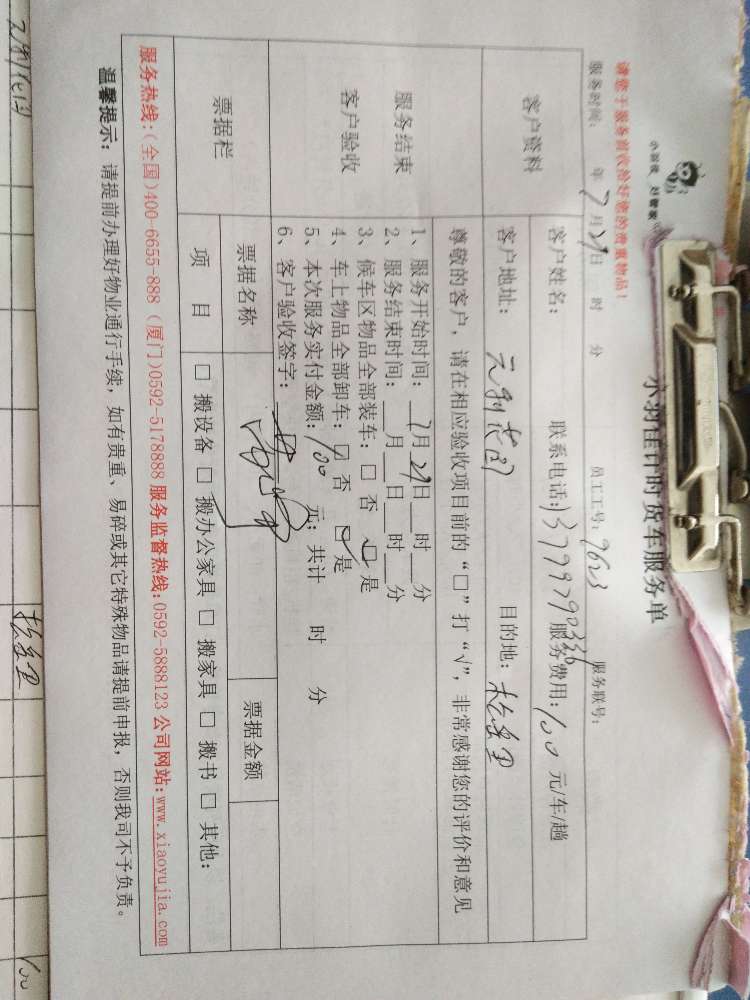 小羽佳计时货车服务单
请您于服务前收拾好您的贵重物品！
服务时间： 年 7月29日 时 分 员工工号：9623 服务联号：
客户资料
客户姓名： 联系电话：13799790336 服务费用：100 元/车/趟
客户地址： 元 花园 目的地：
尊敬的客户，请在相应验收项目前的“□”打“√”，非常感谢您的评价和意见
服务结束
客户验收
1、服务开始时间：7月29日 时 分
2、服务结束时间： 月 日 时 分
3、候车区物品全部装车：□否 ☑是
4、车上物品全部卸车：□否 ☑是
5、本次服务实付金额：100 元；共计 时 分
6、客户验收签字：
票据栏
票据名称 票据金额
项 目 □搬设备 □搬办公家具 □搬家具 □搬书 □其他：
服务热线：(全国)400-6655-888 (厦门)0592-5178888 服务监督热线：0592-5888123 公司网站：www.xiaoyujia.com
温馨提示：请提前办理好物业通行手续，如有贵重、易碎或其它特殊物品请提前申报，否则我司不予负责。
100